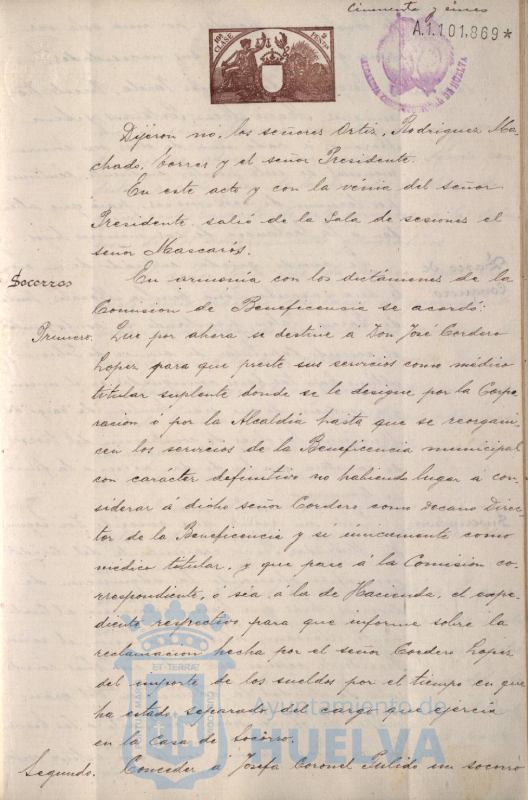 Cincuenta y cinco
A.1.101,869*
10ª CLASE 2 PESETAS
ALCALDIA CONSTITUCIONAL DE HUELVA
Dijeron no, los señores Ortiz, Rodriguez Ma-
chado, Correr y el señor Presidente.
En este acto y con la vénia del señor
Presidente salió de la Sala de sesiones el
señor Mascarós.
Socorros
En armonía con los dictámenes de la
Comision de Beneficencia se acordó:
Primero. Que por ahora se destine á Don José Cordero
Lopez para que preste sus servicios como médico
titular suplente donde se le designe por la Corpo-
racion ó por la Alcaldía hasta que se reorgani-
cen los servicios de la Beneficencia municipal
con carácter definitivo no habiendo lugar á con-
siderar á dicho señor Cordero como Decano Direc-
tor de la Beneficencia y sí únicamente como
medico titular, y que pase á la Comision co-
rrespondiente, ó séa, á la de Hacienda, el espe-
diente respectivo para que informe sobre la
reclamacion hecha por el señor Cordero Lopez
del importe de los sueldos por el tiempo en que
ha estado separado del cargo que ejercia
en la Casa de Socorro.
Segundo. Conceder á Josefa Coronel Pulido un socorro
ET TERRÆ
Ayuntamiento de
HUELVA